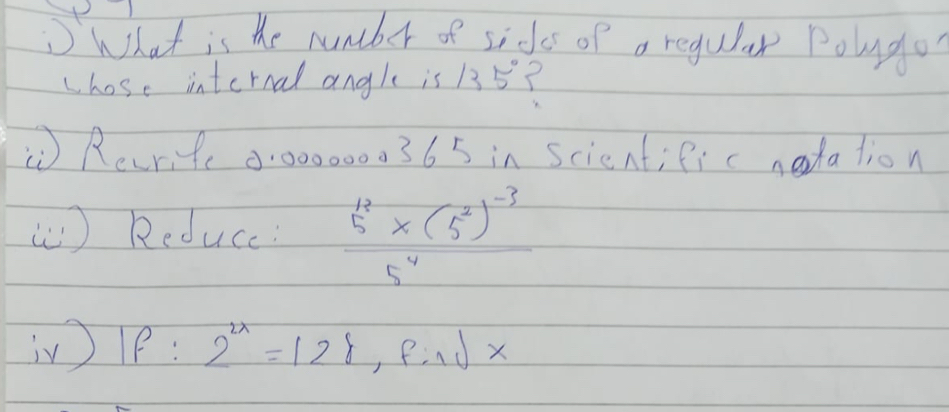 i) What is the number of sides of a regular Polygon
whose internal angle is 135°?
ii) Rewrite 0.0000000365 in scientific notation
iii) Reduce: (5^13 × (5^2)^-3) / 5^4
iv) If : 2^2x = 128, find x